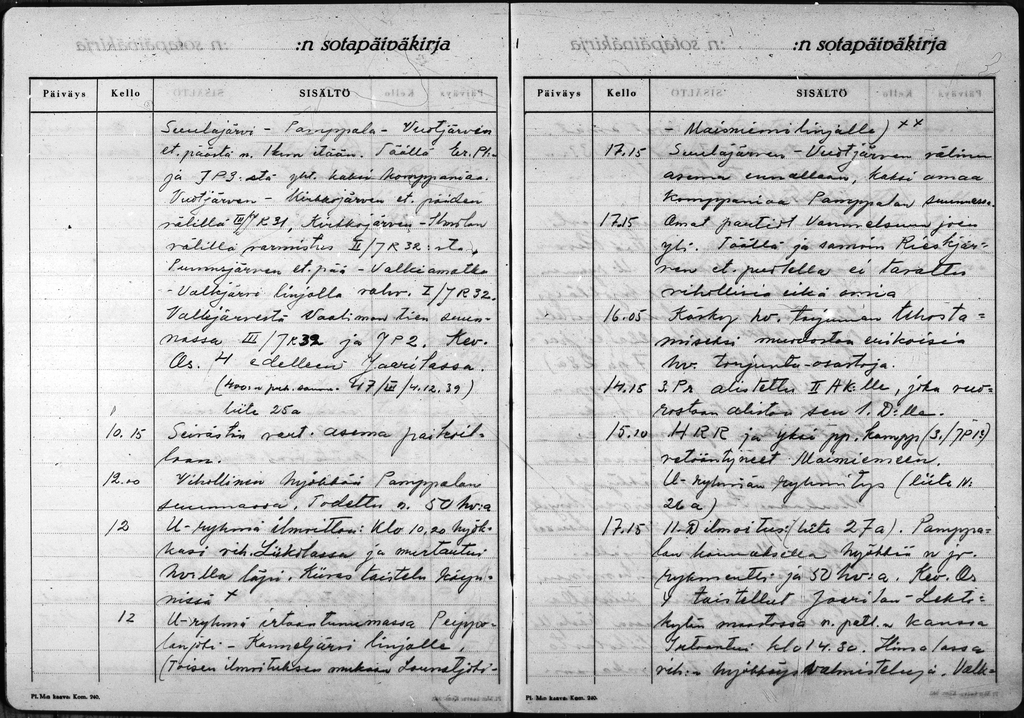 :n sotapäiväkirja
Päiväys Kello SISÄLTÖ
Suulajärvi - Pamppala - Vuotjärven
et. päästä n. 1 km itään. Täällä Er. P1.
ja JP3:sta yht. kaksi komppaniaa.
Vuotjärven - Kirkkojärven et. päiden
välillä III/JR31, Kirkkojärven -
välillä varmistus II/JR32:sta,
Punnusjärven et. pää - Valkiamatka
- Valkjärvi linjalla vahv. I/JR32.
Valkjärvestä Vaalimon tien suun-
nassa III/JR32 ja JP2. Kev.
Os. 4 edelleen Jaarilassa.
(4.12.39)
liite 25a
10.15 Seivästön vart. asema paikoil-
laan.
12.00 Vihollinen hyökkää Pamppalan
suunnassa. Todettu n. 50 hv:a
12 U-ryhmä ilmoittaa: Klo 10,20 hyök-
käsi vih. Liikolassa ja murtautui
hv:illa läpi. Kiivas taistelu käyn-
nissä +
12 U-ryhmä irtaantumassa Peippo-
lanjoki - Kanneljärvi linjalle,
(Toisen ilmoituksen mukaan Lounatjoki-
Pl. M:n kaava. Kom. 240.
:n sotapäiväkirja
Päiväys Kello SISÄLTÖ
- Maisniemi linjalle) ++
17.15 Suulajärven - Vuotjärven välinen
asema ennallaan, kaksi omaa
komppaniaa Pamppalan suunnassa.
17.15 Omat partiot Vammelsuun joen
yli. Täällä ja samoin Riiskjär-
ven et. puolella ei tavattu
vihollisia eikä omia
16.05 Käsky hv. torjunnan tehosta-
miseksi muodostaa erikoisia
hv. torjunta-osastoja.
14.15 3.Pr. alistettu II AK:lle, joka vuo-
rostaan alistaa sen 1. D:lle.
15.20 HRR ja yksi pp. kompp (3./JP13)
vetääntyneet Maisniemeen.
U-ryhmän ryhmitys (liite N:
26a)
17.15 11.D ilmoitus: (liite 27a). Pamppa-
lan kannaksella hyökkää n jv.
rykmentti ja 50 hv:a. Kev. Os
4 taistellut Jaarilan - Lehto-
kylän maastossa n. patl.n kanssa
Irtaantui klo 14.30. Himalassa
vih:n hyökkäysvalmisteluja, Valk-
Pl. M:n kaava. Kom. 240.